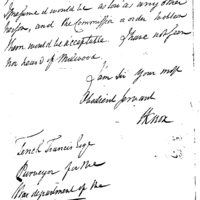 I presume it would be as low as any other
person, and the Commission a order holden
them would be acceptable. I have not seen
nor heard of Millwood
I am Sir your most
Obedient servant
HKnox
Tench Francis Esqr
Purveyor for the
War department of the